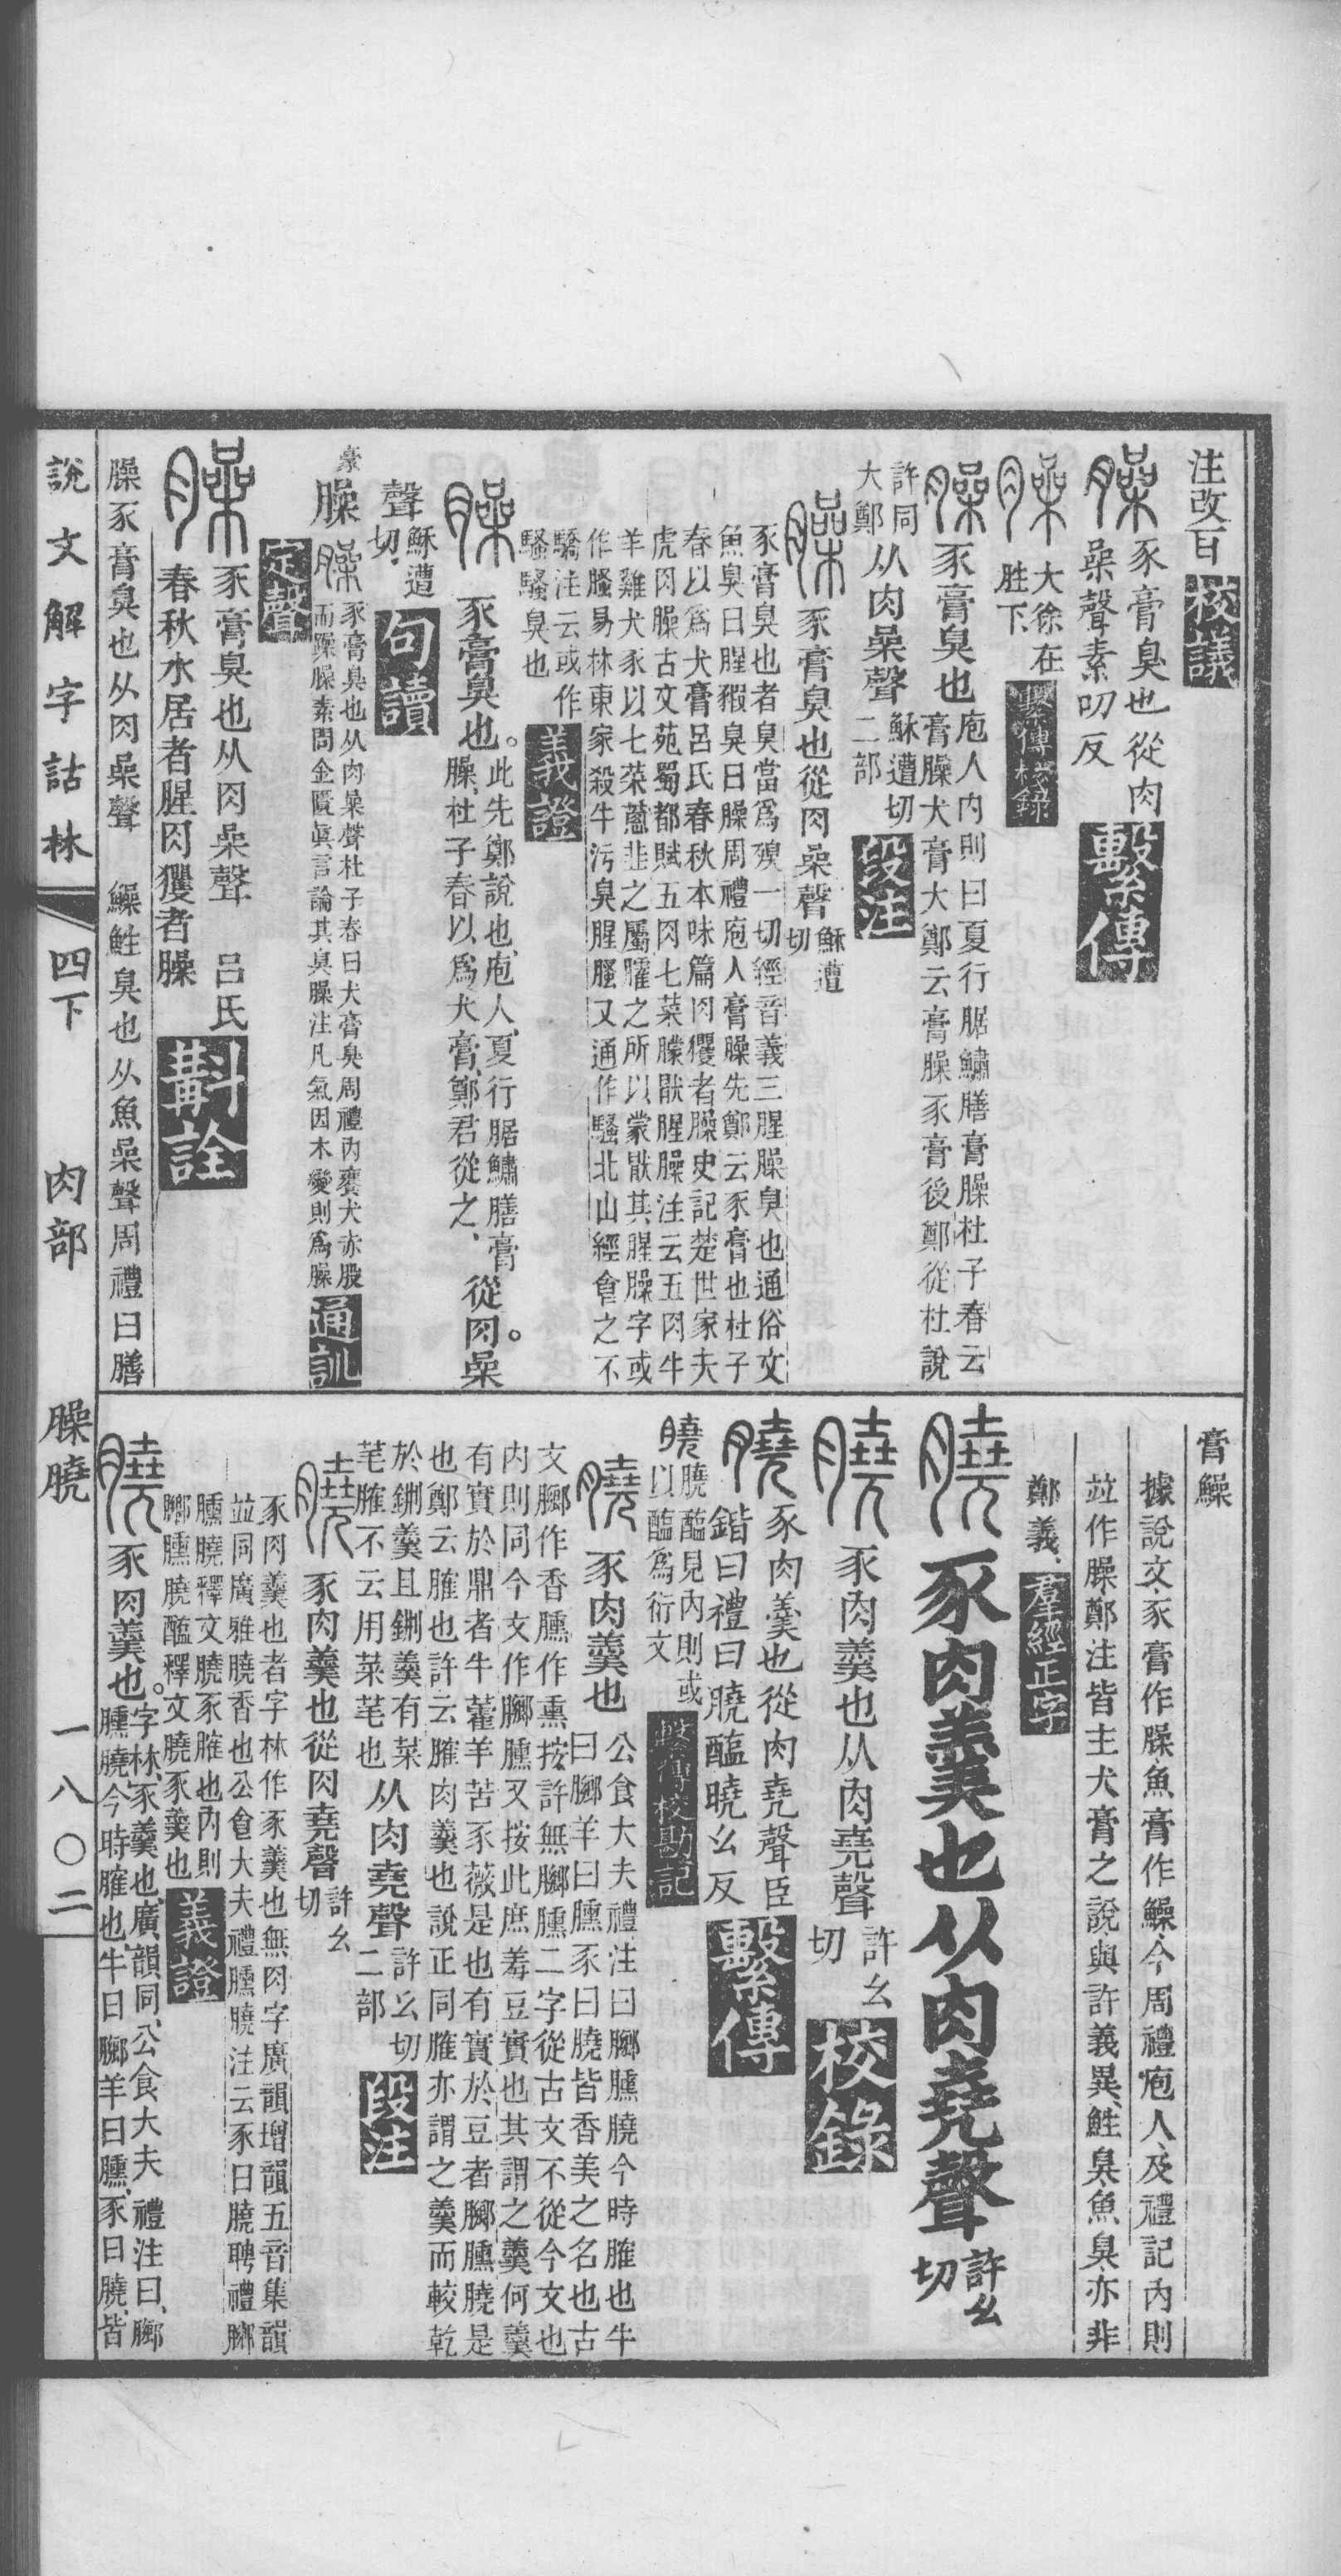 注改百校議
臊豕膏臭也從肉
喿聲素叨反繫傳
臊大徐在
胜下繫傳校錄
臊豕膏臭也庖人內則曰夏行腒鱐膳膏臊杜子春云
膏臊犬膏大鄭云膏臊豕膏後鄭從杜說
許同
大鄭从肉喿聲穌遭切
二部段注
臊豕膏臭也從肉喿聲穌遭
切
豕膏臭也者臭當爲殠一切經音義三腥臊臭也通俗文
魚臭曰腥猳臭曰臊周禮庖人膏臊先鄭云豕膏也杜子
春以爲犬膏呂氏春秋本味篇肉玃者臊史記楚世家夫
虎肉臊古文苑蜀都賦五肉七菜朦猒腥臊注云五肉牛
羊雞犬豕以七菜蔥韭之屬臛之所以蒙猒其腥臊字或
作臊易林東家殺牛污臭腥臊又通作騷北山經食之不
驕注云或作
騷騷臭也義證
臊豕膏臭也。此先鄭說也、庖人、夏行腒鱐膳膏
臊、杜子春以爲犬膏、鄭君從之、從肉。喿
聲穌遭
切、句讀
臊臊豕膏臭也从肉喿聲杜子春曰犬膏臭周禮內饔犬赤股
而躁臊素問金匱眞言論其臭臊注凡氣因木變則爲臊通訓
定聲
臊豕膏臭也从肉喿聲 呂氏
春秋水居者腥肉玃者臊斠詮
臊豕膏臭也从肉喿聲 鱢鮏臭也从魚喿聲周禮曰膳
膏鱢
據說文豕膏作臊魚膏作鱢今周禮庖人及禮記內則
竝作臊鄭注皆主犬膏之說與許義異鮏臭魚臭亦非
鄭義、羣經正字
膮豕肉羹也从肉堯聲許幺
切
膮豕肉羹也从肉堯聲許幺
切校錄
膮豕肉羹也從肉堯聲臣
鍇曰禮曰膮醢曉幺反繫傳
膮膮醢見內則或
以醢爲衍文繫傳校勘記
膮豕肉羹也公食大夫禮注曰膷臐膮今時臛也牛
曰膷羊曰臐豕曰膮皆香美之名也古
文膷作香臐作熏按許無膷臐二字從古文不從今文也
內則同今文作膷臐又按此庶羞豆實也其謂之羹何羹
有實於鼎者牛藿羊苦豕薇是也有實於豆者膷臐膮是
也鄭云臛也許云臛肉羹也說正同臛亦謂之羹而較乾
於鉶羹且鉶羹有菜
芼臛不云用菜芼也从肉堯聲許幺切
二部段注
膮豕肉羹也從肉堯聲許幺
切
豕肉羹也者字林作豕羹也無肉字廣韻增韻五音集韻
竝同廣雅膮香也公食大夫禮臐膮注云豕曰膮聘禮膷
臐膮釋文膮豕臛也內則
膷臐膮醢釋文膮豕羹也義證
膮豕肉羹也。字林、豕羹也、廣韻同、公食大夫禮注曰、膷
臐膮今時臛也牛曰膷羊曰臐、豕曰膮、皆
說文解字詁林 四下 肉部 臊膮 一八〇二